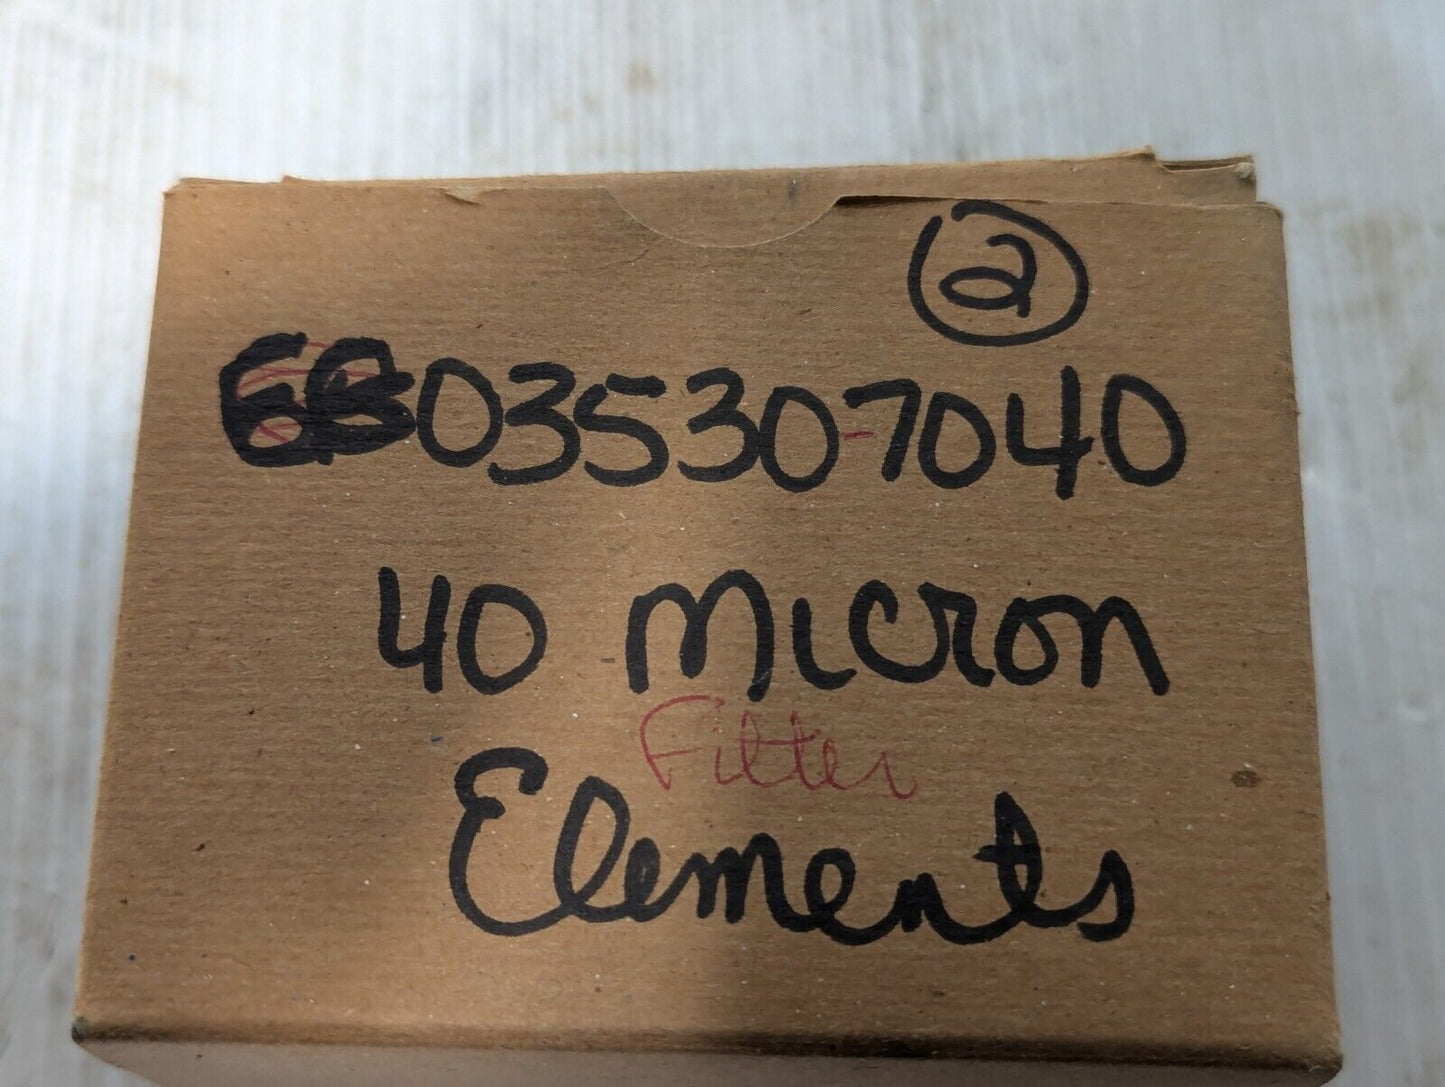 2
035307040
40 Micron
Filter
Elements